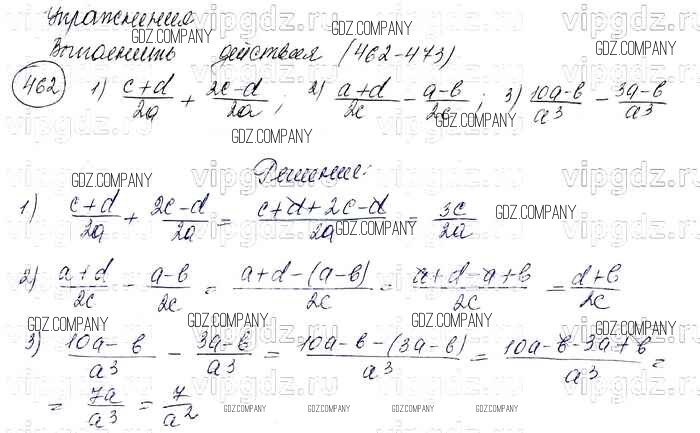 Упражнения
Выполнить действия (462-473)
462 1) (c+d)/2a + (2c-d)/2a; 2) (a+d)/2c - (a-b)/2c; 3) (10a-b)/a³ - (3a-b)/a³
Решение:
1) (c+d)/2a + (2c-d)/2a = (c+d+2c-d)/2a = 3c/2a
2) (a+d)/2c - (a-b)/2c = (a+d-(a-b))/2c = (a+d-a+b)/2c = (d+b)/2c
3) (10a-b)/a³ - (3a-b)/a³ = (10a-b-(3a-b))/a³ = (10a-b-3a+b)/a³ =
= 7a/a³ = 7/a²
GDZ.COMPANY
vipgdz.ru